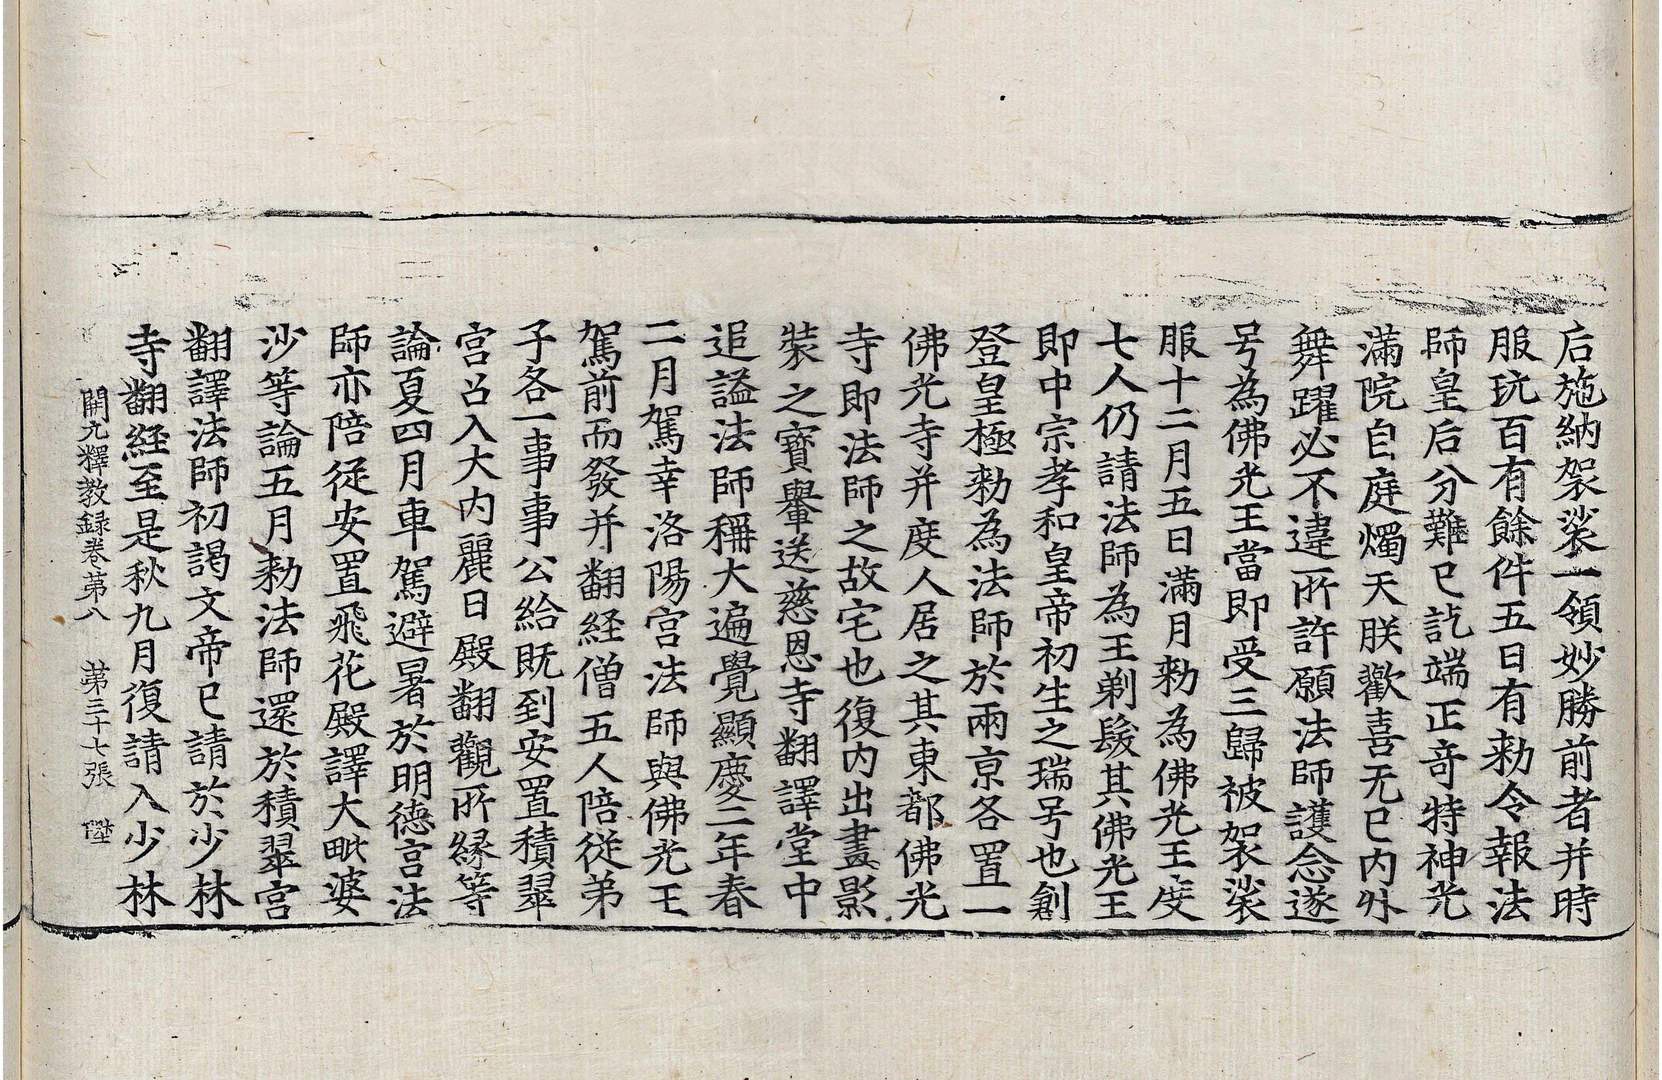 后施納袈裟一領妙勝前者并時
服玩百有餘件五日有勑令報法
師皇后分難已訖端正奇特神光
滿院自庭燭天朕歡喜无已內外
舞躍必不違所許願法師護念遂
号為佛光王當即受三歸被袈裟
服十二月五日滿月勑為佛光王度
七人仍請法師為王剃髮其佛光王
即中宗孝和皇帝初生之瑞号也創
登皇極勑為法師於兩京各置一
佛光寺并度人居之其東都佛光
寺即法師之故宅也復內出畫影
裝之寶轝送慈恩寺翻譯堂中
追謚法師稱大遍覺顯慶二年春
二月駕幸洛陽宮法師與佛光王
駕前而發并翻経僧五人陪從弟
子各一事事公給既到安置積翠
宮召入大內麗日殿翻觀所緣等
論夏四月車駕避暑於明德宮法
師亦陪從安置飛花殿譯大毗婆
沙等論五月勑法師還於積翠宮
翻譯法師初謁文帝已請於少林
寺翻経至是秋九月復請入少林
開元釋教録卷第八 第三十七張